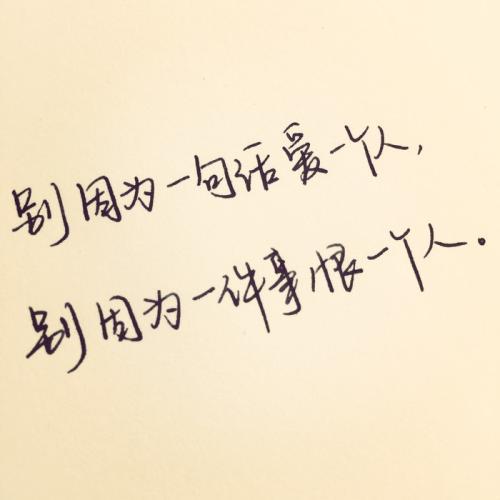 别因为一句话爱一个人,
别因为一件事恨一个人.